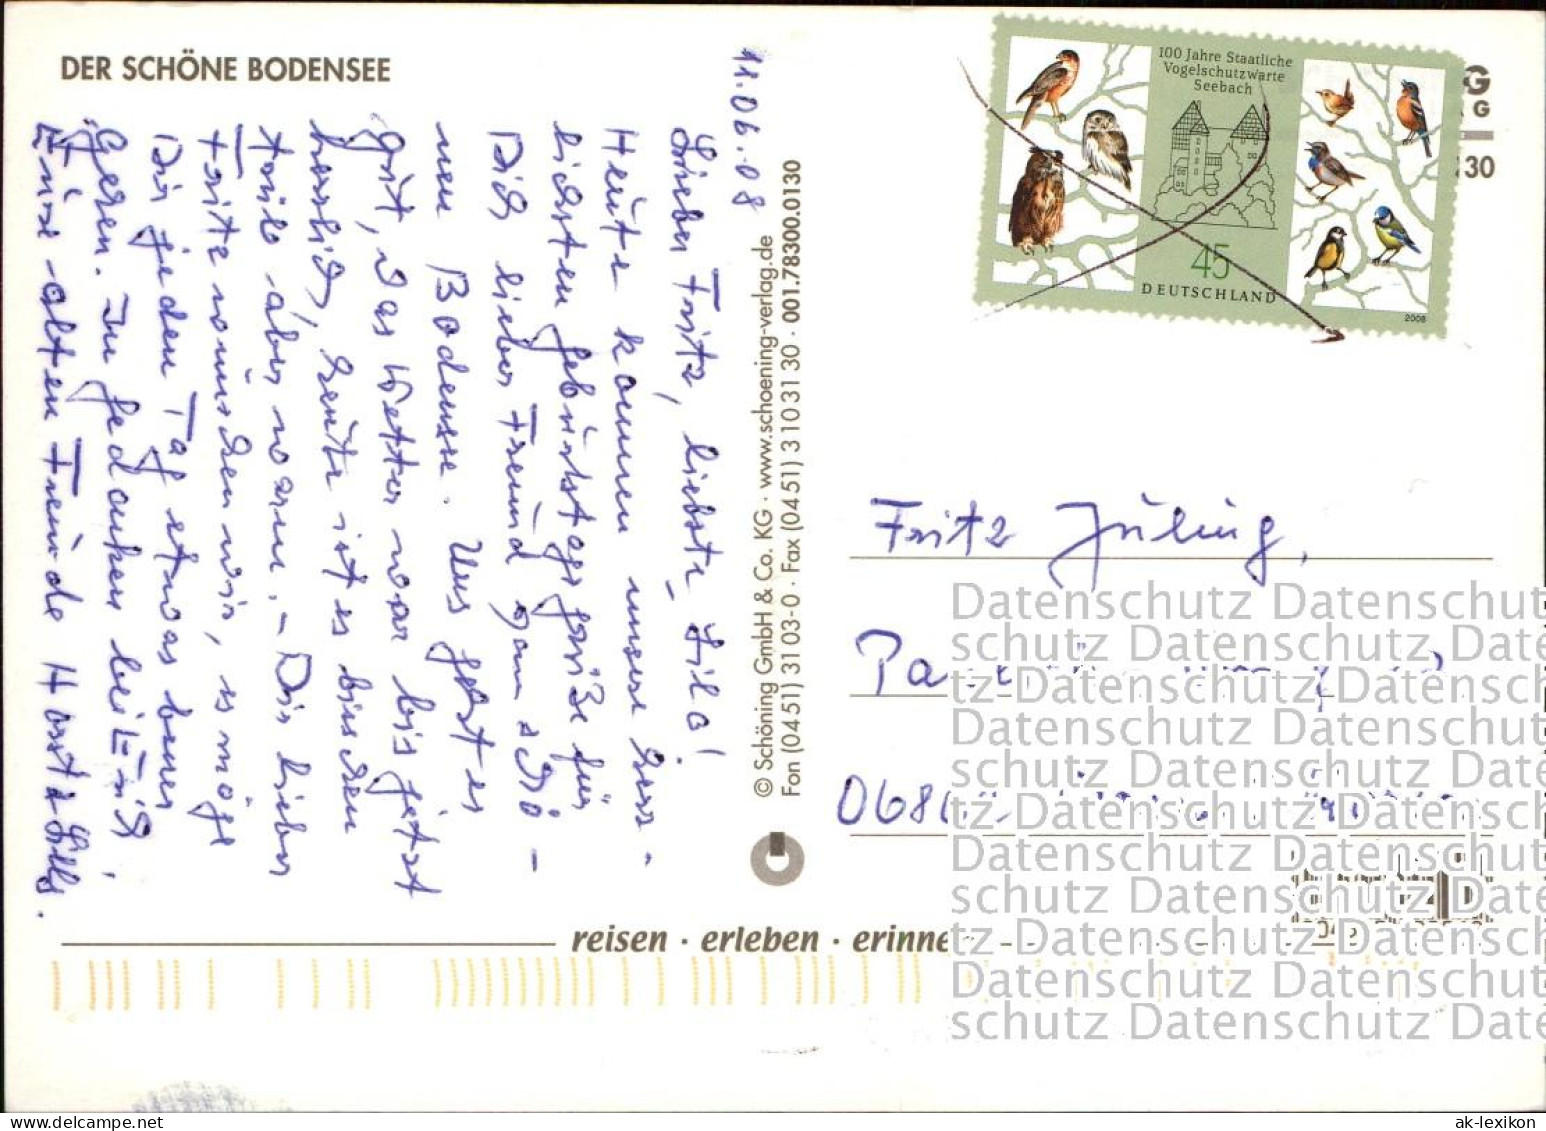 DER SCHÖNE BODENSEE
11.06.08
Lieber Fritz, liebste Lilo!
Heute kommen unsere herz-
lichsten Geburtstagsgrüße für
Dich lieber Freund vom schö-
nen Bodensee. Uns geht es
gut, das Wetter war bis jetzt
herrlich, heute ist es bisschen
trüb aber warm. - Dir lieber
Fritz wünschen wir, es möge
Dir jeden Tag etwas besser
gehen. In Gedanken bei Euch,
Eure alten Freunde Horst & Lilli.
© Schöning GmbH & Co. KG · www.schoening-verlag.de
Fon (04 51) 31 03-0 · Fax (04 51) 3 10 31 30 · 001.78300.0130
100 Jahre Staatliche
Vogelschutzwarte
Seebach
45
DEUTSCHLAND
2008
G
G
30
Fritz Jüling,
Pa
068
reisen · erleben · erinne
Datenschutz Datenschutz
schutz Datenschutz Date
tz Datenschutz Datensch
Datenschutz Datenschutz
schutz Datenschutz Date
tz Datenschutz Datensch
Datenschutz Datenschutz
schutz Datenschutz Date
tz Datenschutz Datensch
Datenschutz Datenschutz
schutz Datenschutz Date
ak-lexikon